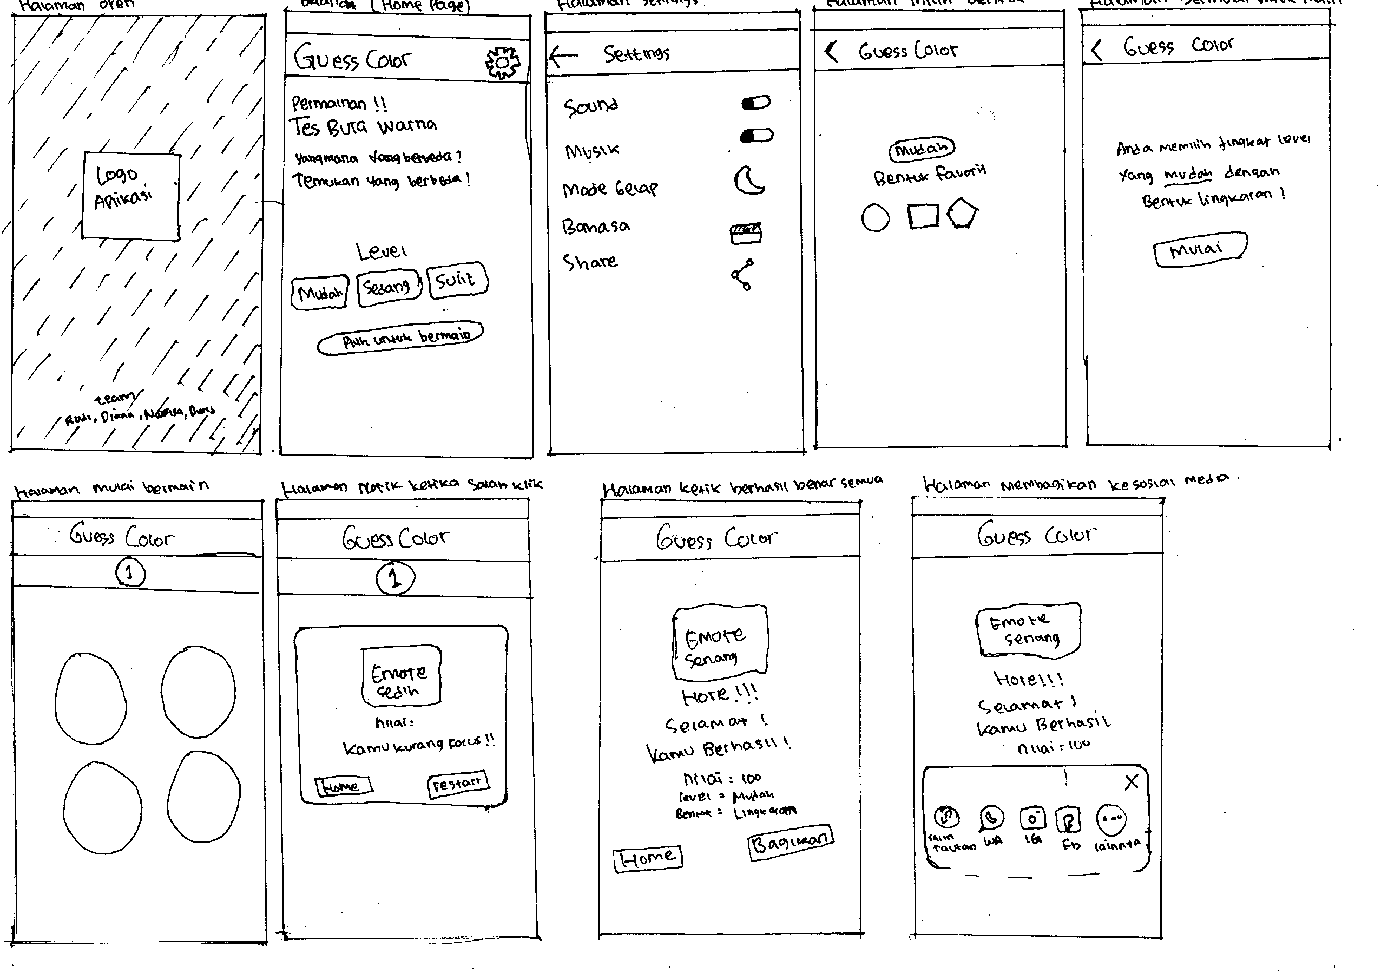 Halaman
(Home Page)
Halaman settings
Halaman
Halaman
Logo
Aplikasi
team
Guess Color
Permainan !!
Tes Buta Warna
Yang mana Yang berbeda?
Temukan yang berbeda!
Level
Mudah
Sedang
Sulit
Pilih untuk bermain
Settings
Sound
Musik
Mode Gelap
Bahasa
Share
Guess Color
Mudah
Bentuk Favorit
Guess Color
Anda memilih tingkat level
Yang mudah dengan
Bentuk lingkaran !
Mulai
Halaman mulai bermain
Guess Color
1
Halaman Notik ketika salah klik
Guess Color
1
Emote
sedih
Nilai:
Kamu kurang focus!!
Home
restart
Halaman ketik berhasil benar semua
Guess Color
Emote
senang
Hore!!!
Selamat !
Kamu Berhasil !
Nilai = 100
Level = Mudah
Bentuk = Lingkaran
Home
Bagikan
Halaman Membagikan ke sosial media
Guess Color
Emote
senang
Hore!!!
Selamat !
Kamu Berhasil
Nilai = 100
X
salin
Tautan
WA
IG
Fb
lainnya